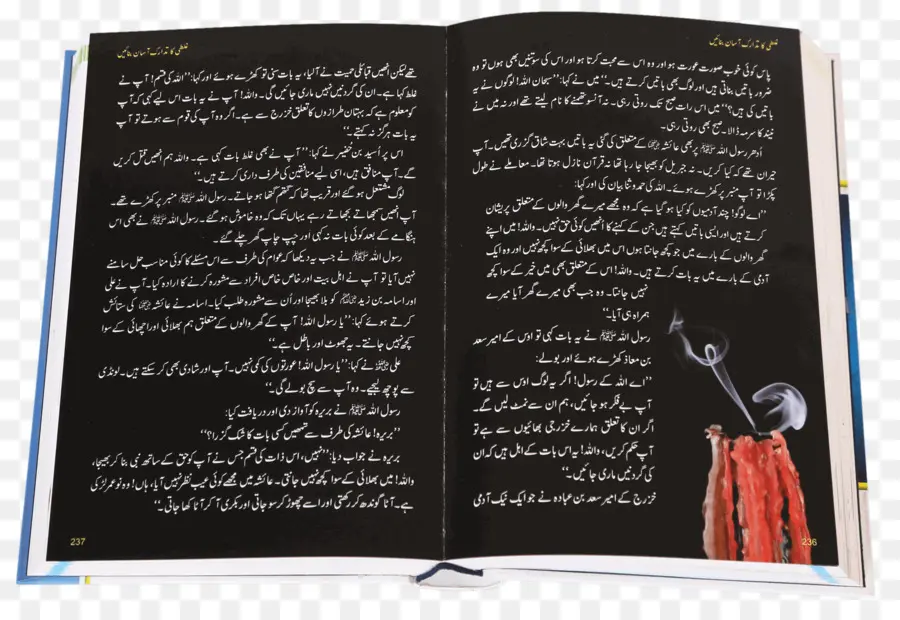 غلطی کا تدارک آسان بنائیں
پاس کوئی خوب صورت عورت ہو اور وہ اس سے محبت کرتا ہو اور اس کی سوتنیں بھی ہوں تو وہ
ضرور باتیں بناتی ہیں اور لوگ بھی باتیں کرتے ہیں۔“ میں نے کہا: ”سبحان اللہ! لوگوں نے یہ
باتیں کی ہیں؟“ میں اس رات صبح تک روتی رہی۔ نہ آنسو تھمنے کا نام لیتے تھے اور نہ میں نے
نیند کا سرمہ ڈالا۔ صبح بھی روتی رہی۔
اُدھر رسول اللہ ﷺ پر بھی عائشہ رضی اللہ عنہا کے متعلق کی گئی یہ باتیں بہت شاق گزری تھیں۔ آپ
حیران تھے کہ کیا کریں۔ نہ جبریل کو بھیجا جا رہا تھا نہ قرآن نازل ہوتا تھا۔ معاملے نے طول
پکڑا تو آپ منبر پر کھڑے ہوئے۔ اللہ کی حمد و ثنا بیان کی اور کہا:
”اے لوگو! چند آدمیوں کو کیا ہو گیا ہے کہ وہ مجھے میرے گھر والوں کے متعلق پریشان
کرتے ہیں اور ایسی باتیں کہتے ہیں جن کے کہنے کا اُنھیں کوئی حق نہیں۔ واللہ! میں اپنے
گھر والوں کے بارے میں جو کچھ جانتا ہوں اس میں بھلائی کے سوا کچھ نہیں اور وہ ایک
آدمی کے بارے میں یہ بات کرتے ہیں۔ واللہ! اس کے متعلق بھی میں خیر کے سوا کچھ
نہیں جانتا۔ وہ جب بھی میرے گھر آیا میرے
ہمراہ ہی آیا۔“
رسول اللہ ﷺ نے یہ بات کہی تو اوس کے امیر سعد
بن معاذ کھڑے ہوئے اور بولے:
”اے اللہ کے رسول! اگر یہ لوگ اوس سے ہیں تو
آپ بے فکر ہو جائیں، ہم ان سے نمٹ لیں گے۔
اگر ان کا تعلق ہمارے خزرجی بھائیوں سے ہے تو
آپ حکم کریں، واللہ! یہ اس بات کے اہل ہیں کہ ان
کی گردنیں ماری جائیں۔“
خزرج کے امیر سعد بن عبادہ نے جو ایک نیک آدمی
236
غلطی کا تدارک آسان بنائیں
تھے لیکن اُنھیں قبائلی حمیت نے آ لیا، یہ بات سنی تو کھڑے ہوئے اور کہا: ”اللہ کی قسم! آپ نے
غلط کہا ہے۔ ان کی گردنیں نہیں ماری جائیں گی۔ واللہ! آپ نے یہ بات اس لیے کہی کہ آپ
کو معلوم ہے کہ بہتان طرازوں کا تعلق خزرج سے ہے۔ اگر وہ آپ کی قوم سے ہوتے تو آپ
یہ بات ہرگز نہ کہتے۔“
اس پر اُسید بن حُضیر نے کہا: ”آپ نے بھی غلط بات کہی ہے۔ واللہ ہم اُنھیں قتل کریں
گے۔ آپ منافق ہیں، اسی لیے منافقین کی طرف داری کرتے ہیں۔“
لوگ مشتعل ہو گئے اور قریب تھا کہ گتھم گتھا ہو جاتے۔ رسول اللہ ﷺ منبر پر کھڑے تھے۔
آپ اُنھیں سمجھاتے بجھاتے رہے یہاں تک کہ وہ خاموش ہو گئے۔ رسول اللہ ﷺ نے بھی اس
ہنگامے کے بعد کوئی بات نہ کہی اور چپ چاپ گھر چلے گئے۔
رسول اللہ ﷺ نے جب یہ دیکھا کہ عوام کی طرف سے اس مسئلے کا کوئی مناسب حل سامنے
نہیں آیا تو آپ نے اہل بیت اور خاص خاص افراد سے مشورہ کرنے کا ارادہ کیا۔ آپ نے علی
اور اسامہ بن زید رضی اللہ عنہم کو بلا بھیجا اور اُن سے مشورہ طلب کیا۔ اسامہ نے عائشہ رضی اللہ عنہا کی ستائش
کرتے ہوئے کہا: ”یا رسول اللہ! آپ کے گھر والوں کے متعلق ہم بھلائی اور اچھائی کے سوا
کچھ نہیں جانتے۔ یہ جھوٹ اور باطل ہے۔“
علی رضی اللہ عنہ نے کہا: ”یا رسول اللہ! عورتوں کی کمی نہیں۔ آپ اور شادی بھی کر سکتے ہیں۔ لونڈی
سے پوچھ لیجیے۔ وہ آپ سے سچ بولے گی۔“
رسول اللہ ﷺ نے بریرہ کو آواز دی اور دریافت کیا:
”بریرہ! عائشہ کی طرف سے تمھیں کسی بات کا شک گزرا؟“
بریرہ نے جواب دیا: ”نہیں، اس ذات کی قسم جس نے آپ کو حق کے ساتھ نبی بنا کر بھیجا،
واللہ! میں بھلائی کے سوا کچھ نہیں جانتی۔ عائشہ میں مجھے کوئی عیب نظر نہیں آیا، ہاں! وہ نو عمر لڑکی
ہے۔ آٹا گوندھ کر رکھتی اور اسے چھوڑ کر سو جاتی اور بکری آ کر آٹا کھا جاتی۔“
237